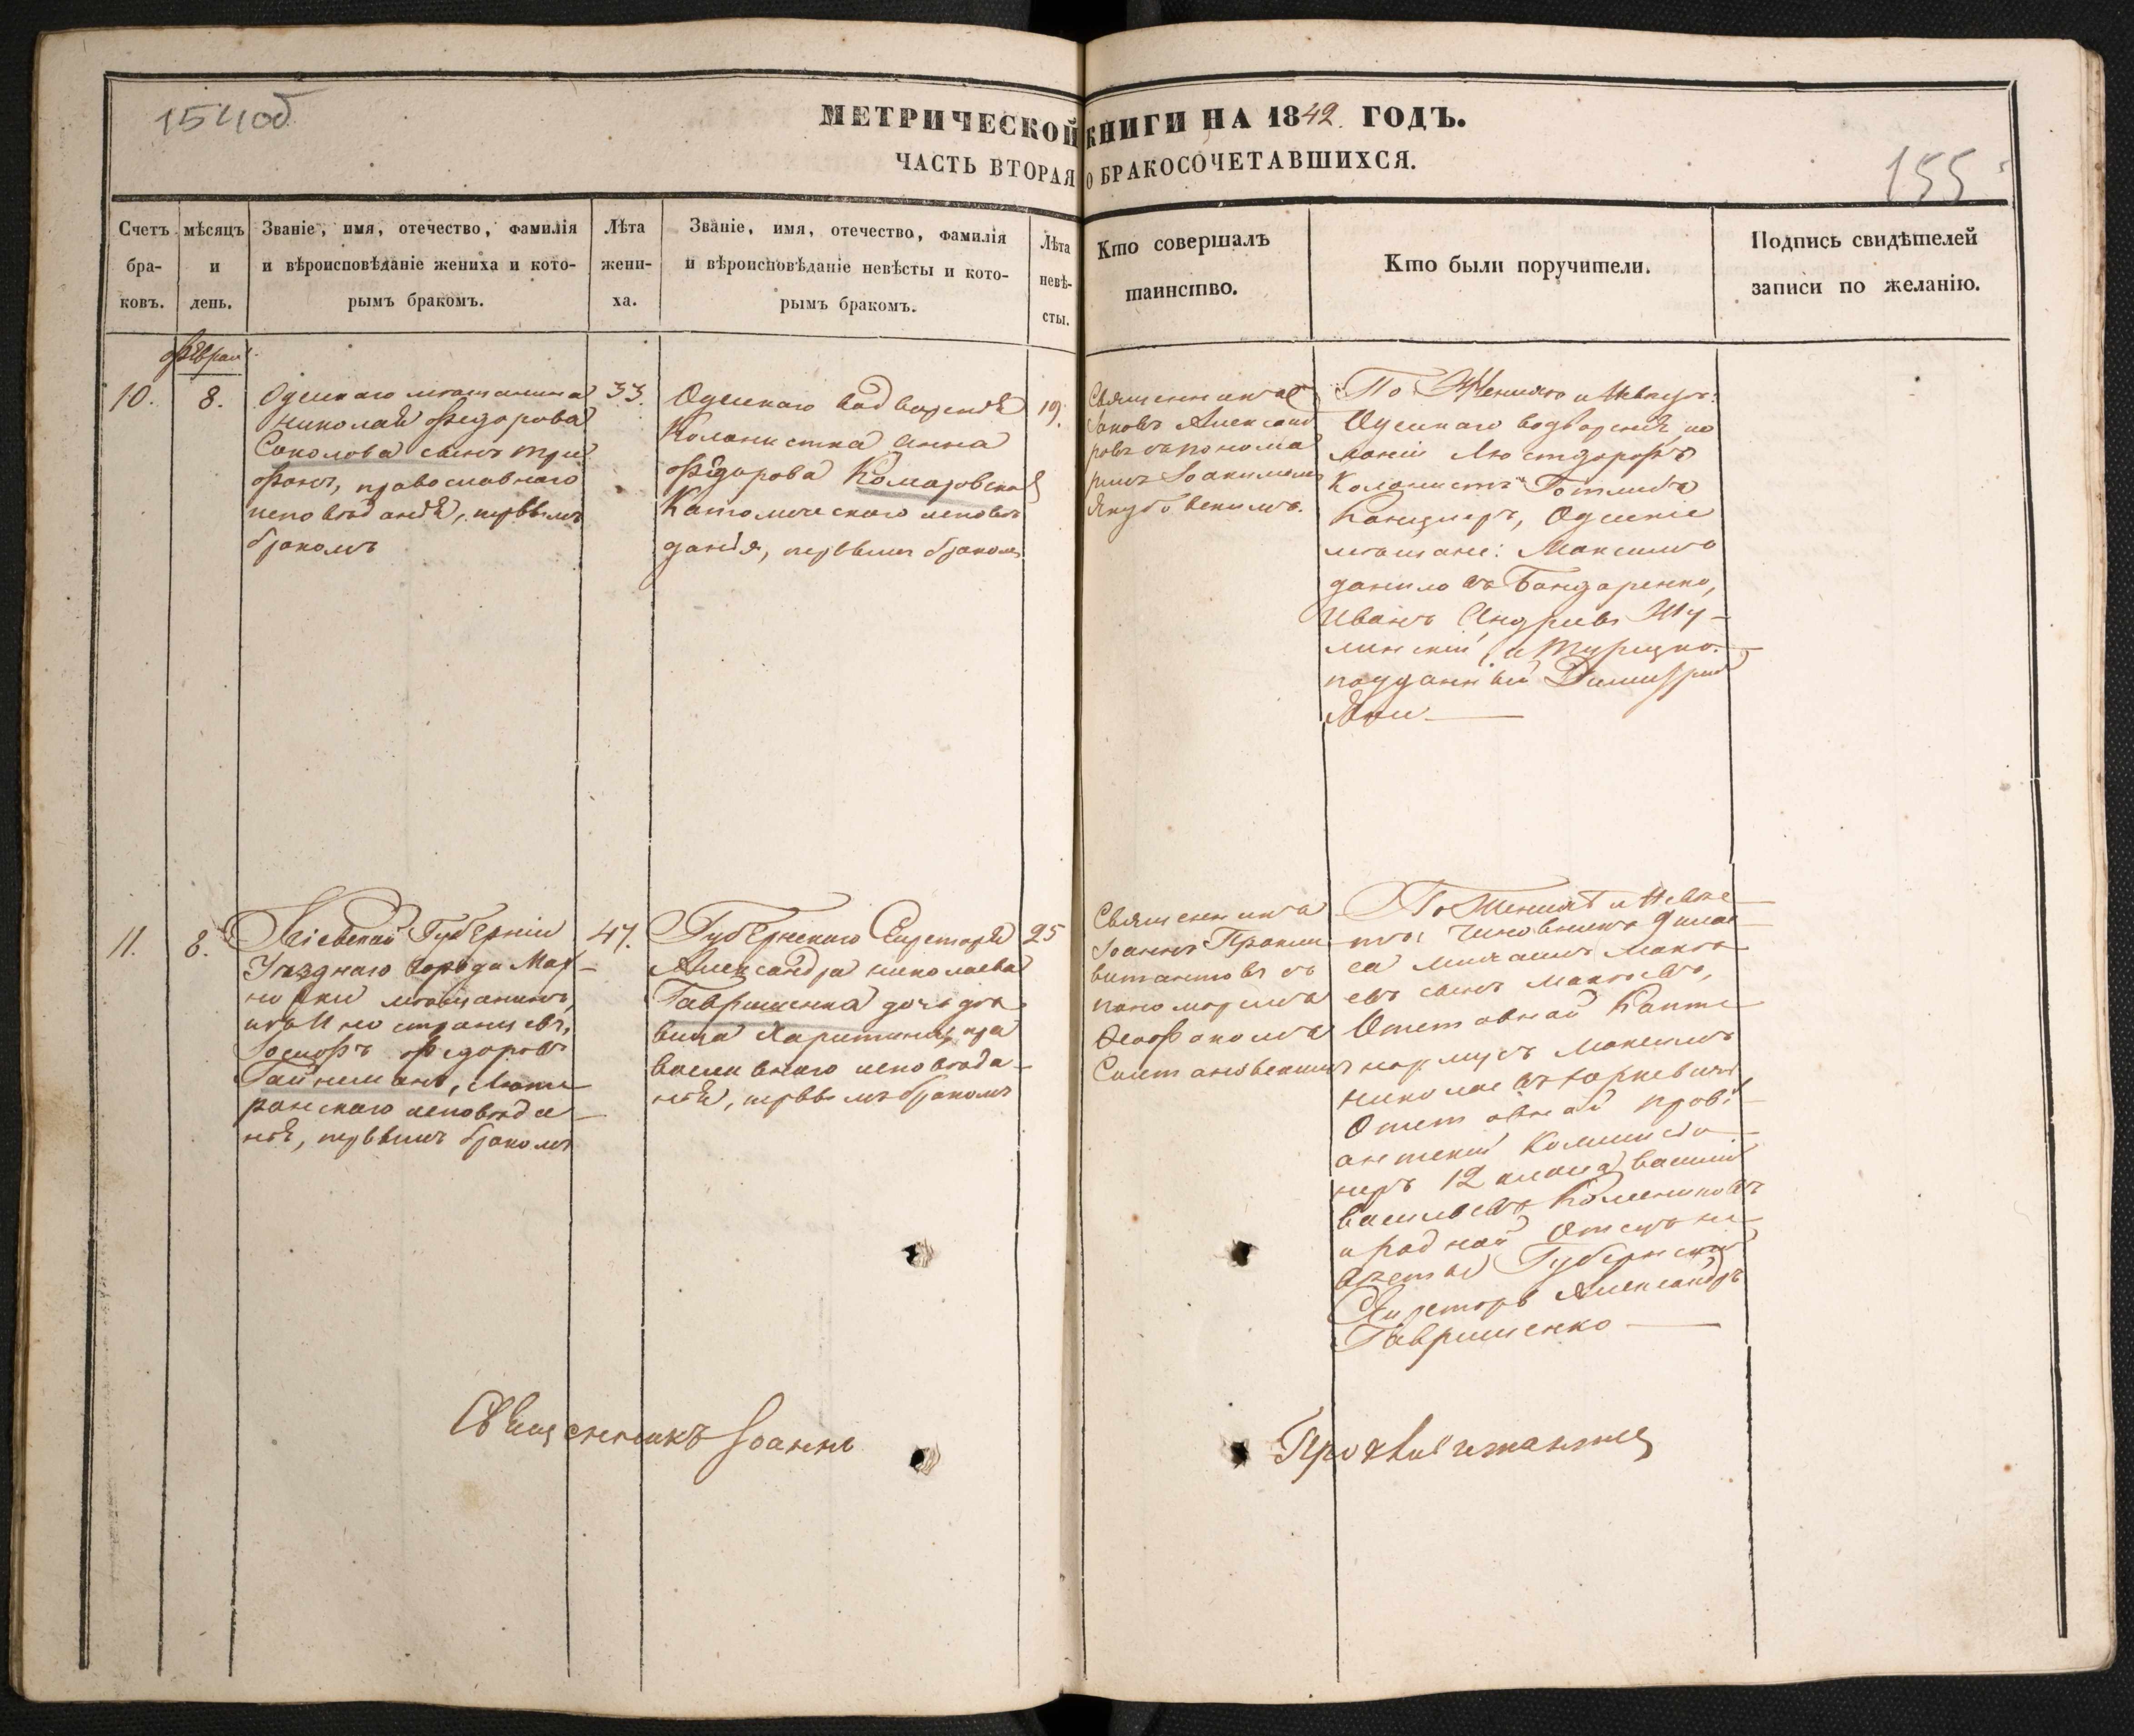 154об
МЕТРИЧЕСКОЙ КНИГИ НА 1842 ГОДЪ.
ЧАСТЬ ВТОРАЯ О БРАКОСОЧЕТАВШИХСЯ.
155
Счетъ бра-ковъ.
мѣсяцъ и день.
Званіе, имя, отечество, фамилія
и вѣроисповѣданіе жениха и кото-
рымъ бракомъ.
Лѣта жени-ха.
Званіе, имя, отечество, фамилія
и вѣроисповѣданіе невѣсты и кото-
рымъ бракомъ.
Лѣта невѣ-сты.
Кто совершалъ
таинство.
Кто были поручители.
Подпись свидѣтелей
записи по желанію.
Феврал
10.
8.
Одескаго мѣщанина
Николая Федорова
Соколова сынъ Три
фонъ, православнаго
исповѣданія, первымъ
бракомъ
33.
Одескаго водворенія
Колонистка Анна
Федорова Комаровская
Католическаго исповѣ
данія, первымъ бракомъ
19.
Священникъ
Іаковъ Александ
ровъ съ понома
ремъ Іоакимомъ
Якубовскимъ.
По Женихѣ и Невѣстѣ:
Одескаго водворенія ко
лоніи Люстдорфъ
Колонистъ Готлибъ
Канцлеръ, Одескіе
мѣщане: Максимъ
Даниловъ Бондаренко,
Иванъ Андреевъ Шу-
линскій, и Турецко-
подданный Димитрій
Яни
11.
8.
Кіевской Губерніи
Уѣзднаго города Мах-
новки мѣщанинъ,
изъ Иностранцевъ,
Іосифъ Федоровъ
Гайнеманъ, Люте
ранскаго исповѣда-
нія, первымъ бракомъ
47.
Губернскаго Секретаря
Александра Николаева
Гавришенка дочь дѣ
вица Харитина, пра
вославнаго исповѣда-
нія, первымъ бракомъ
25
Священникъ
Іоаннъ Прокли
витантовъ съ
пономаремъ
Ѳеофаномъ
Снетановскимъ
По Женихѣ и Невѣс-
тѣ: Чиновникъ 9 клас
са Михаилъ Матвѣ
евъ сынъ Матвѣевъ,
Отставной Капте
нармусъ Максимъ
Николаевъ Юркевичъ
Отставной прові-
антскій Коммисіо-
неръ 12 класа Василій
Васильевъ Колесниковъ
и родной Отецъ не
вѣсты Губернскій
Секретарь Александръ
Гавришенко
Священникъ Іоаннъ
Проклвитантовъ